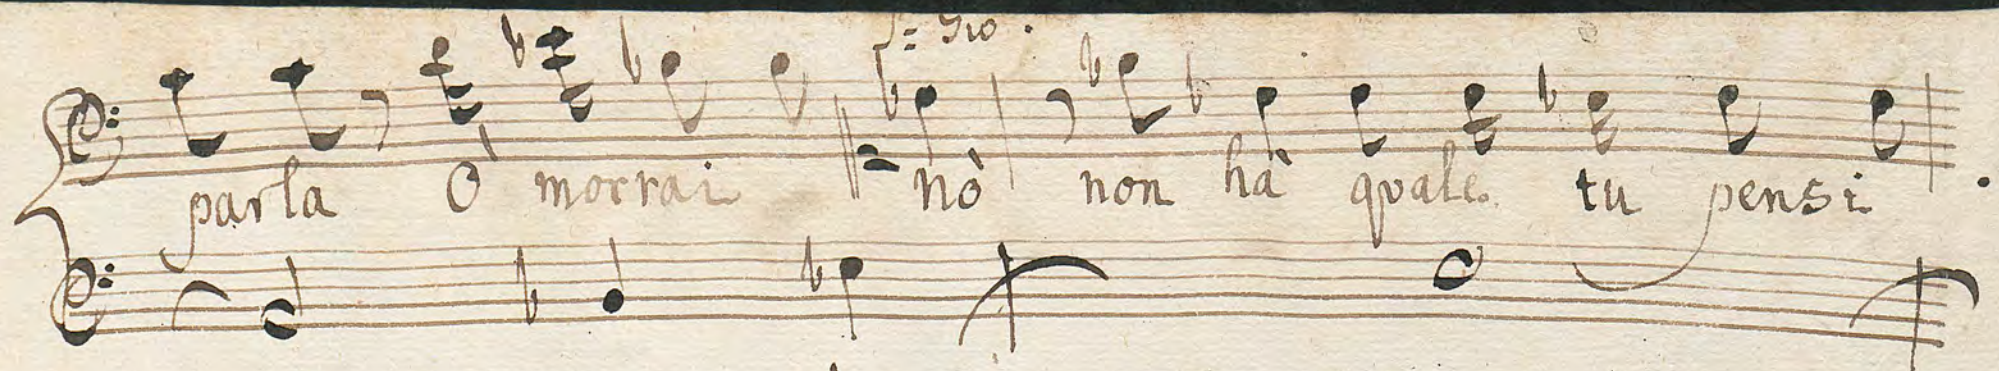 Gio.
parla Ò morrai nò non hà quale tu pensi